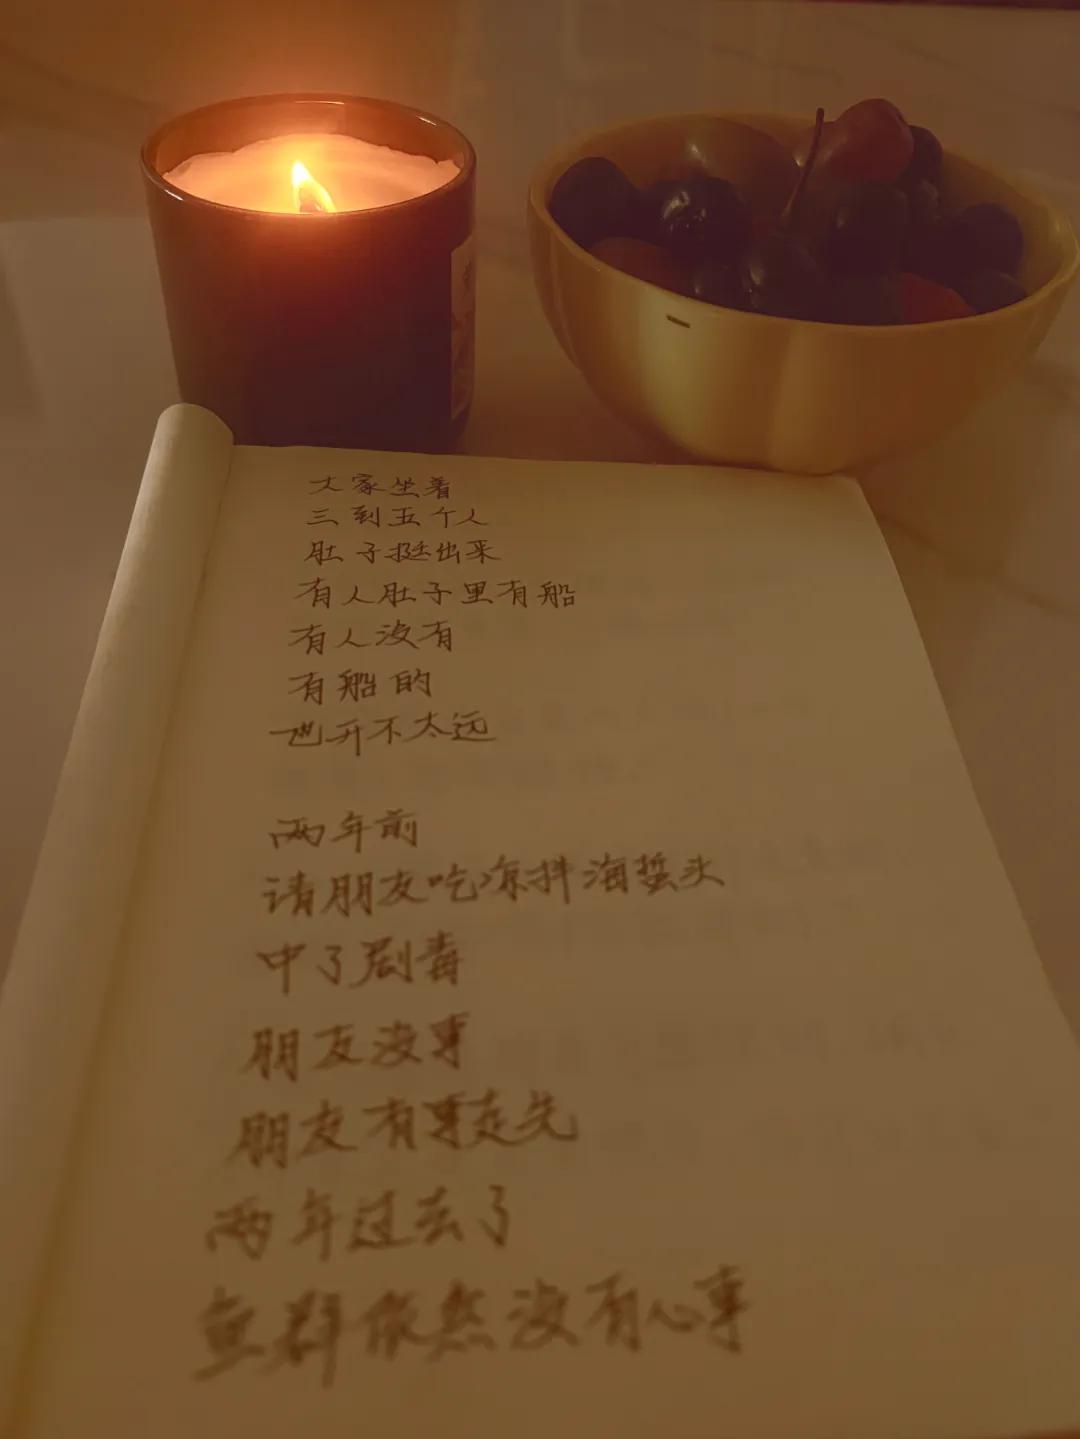 大家坐着
三到五个人
肚子挺出来
有人肚子里有船
有人没有
有船的
也开不太远
两年前
请朋友吃凉拌海蜇头
中了剧毒
朋友没事
朋友有事走先
两年过去了
鱼群依然没有心事